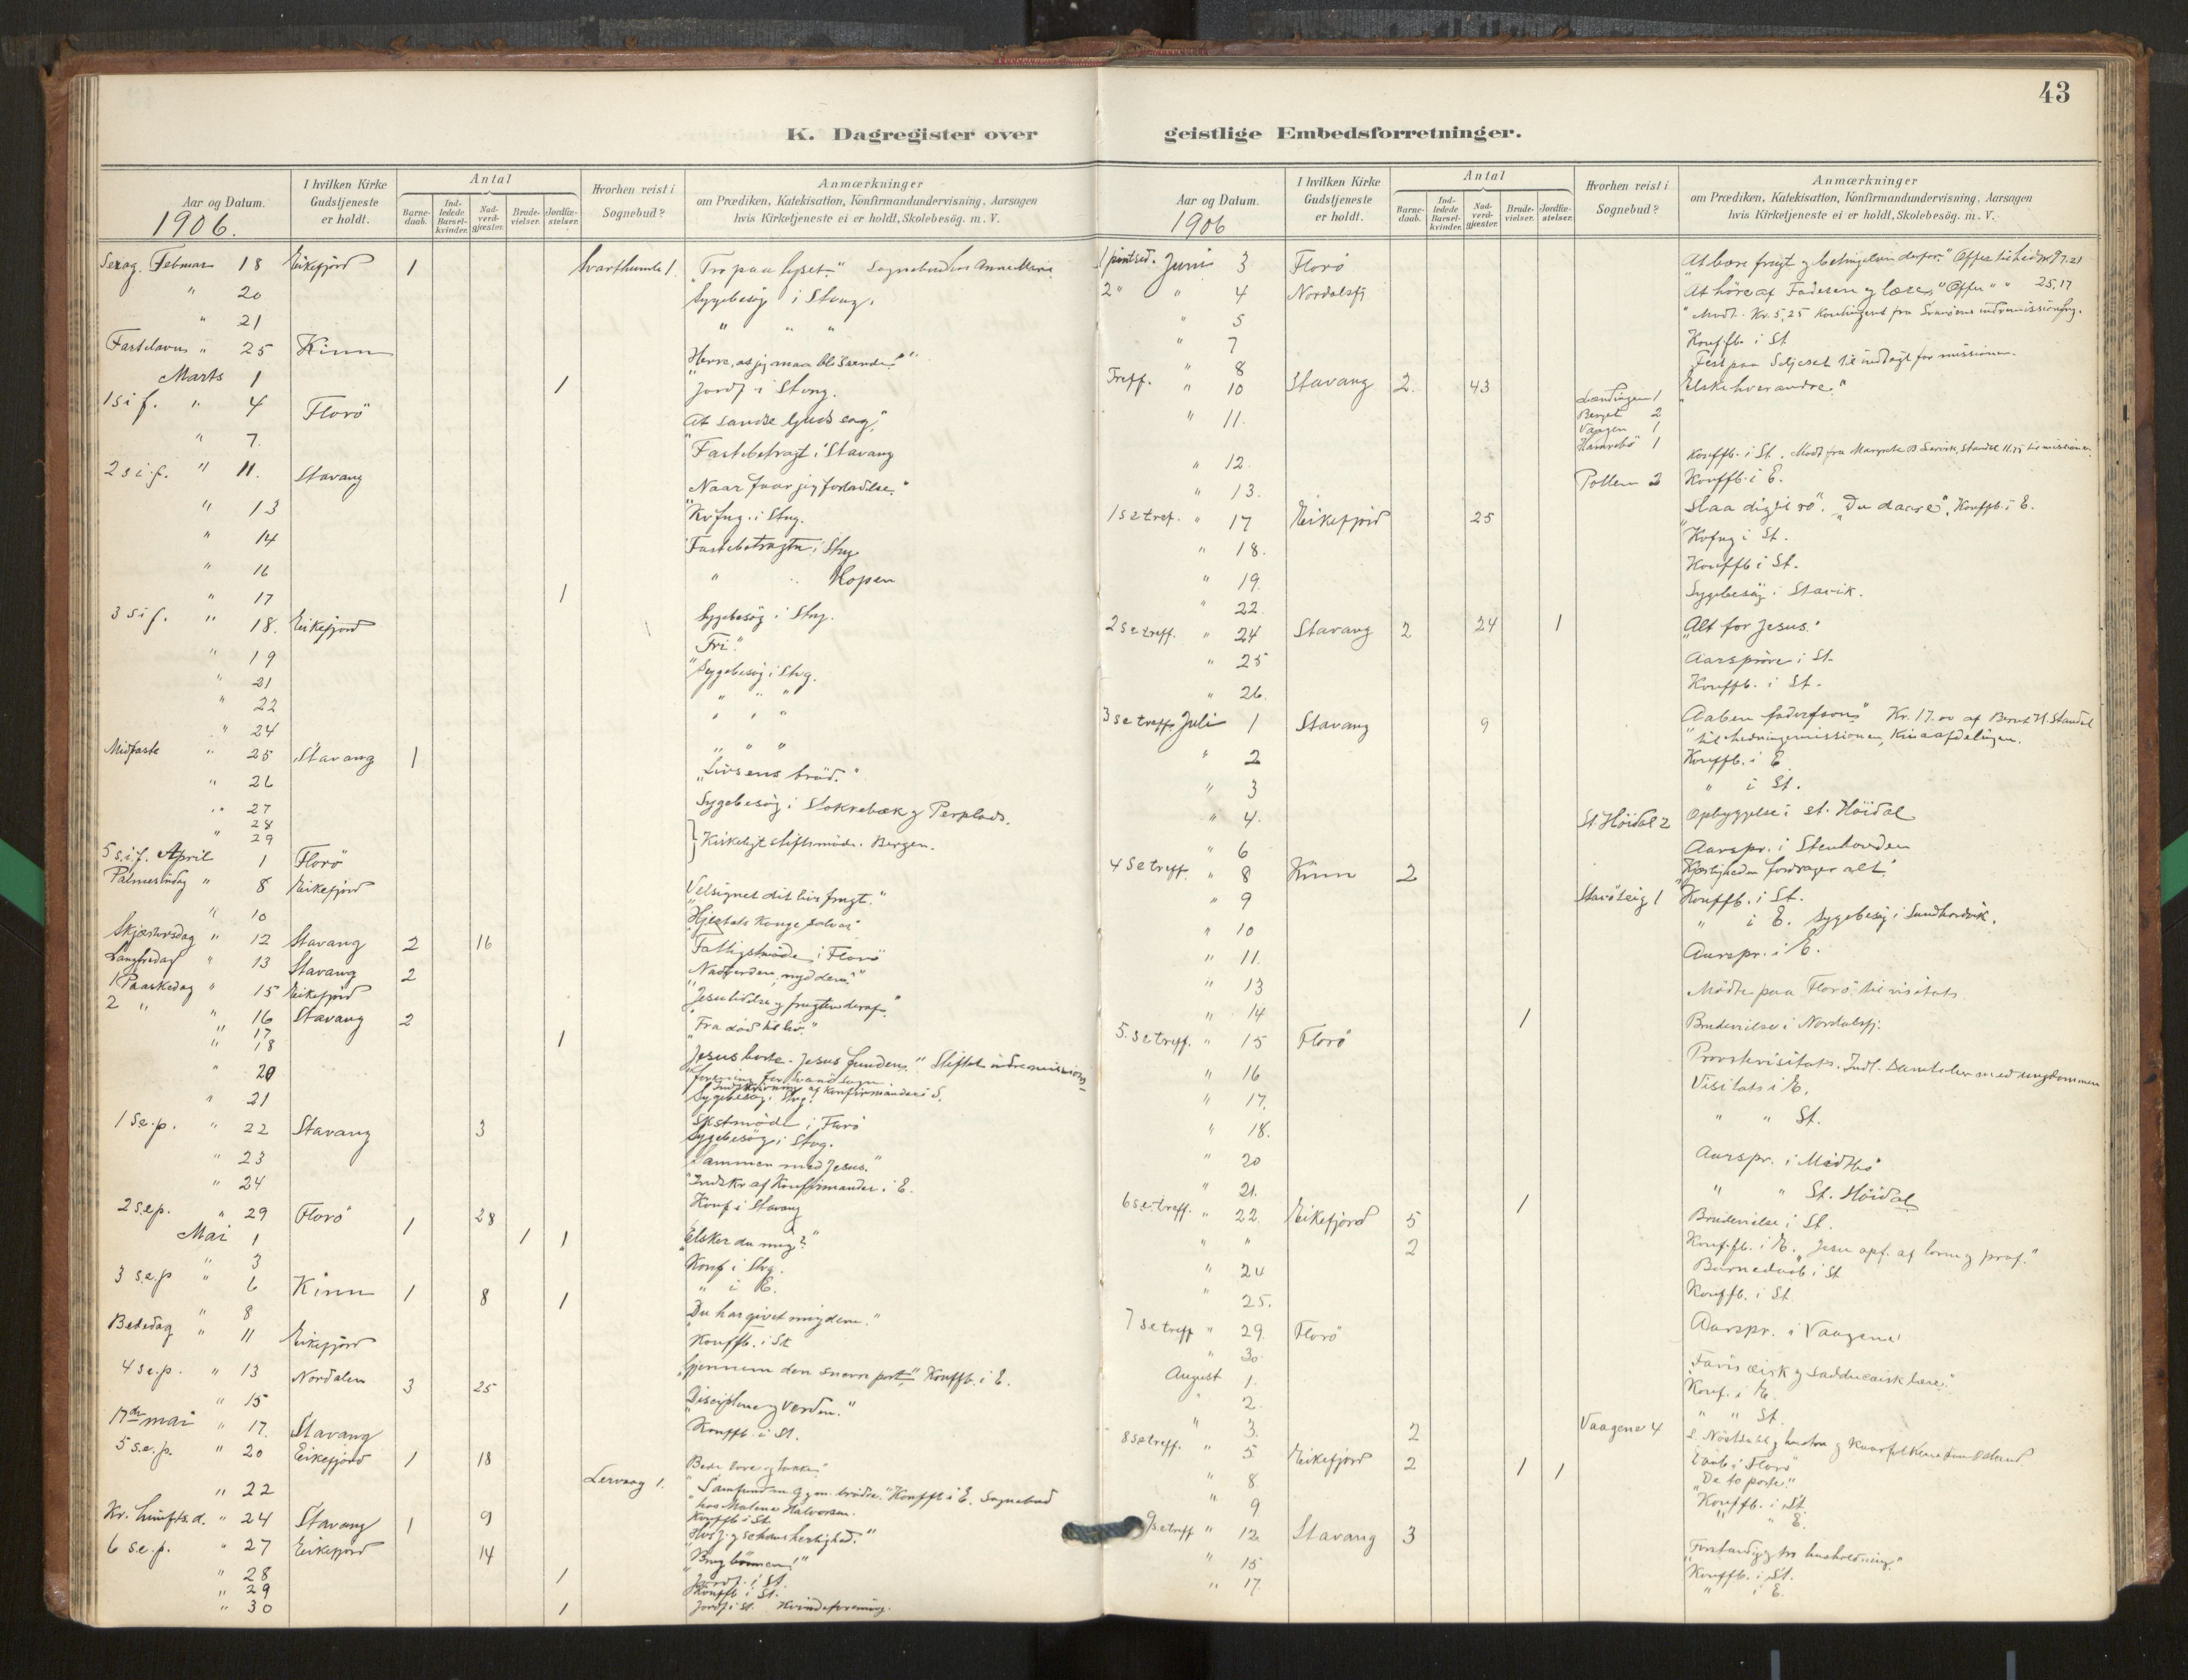 43
K. Dagregister over
Aar og Datum.
1906.
I hvilken Kirke Gudstjeneste er holdt.
Antal
Barnedaab.
Indledede Barselkvinder.
Nadverdgjæster.
Brudevielser.
Jordfæstelser.
Hvorhen reist i Sognebud?
Anmærkninger
om Prædiken, Katekisation, Konfirmandundervisning, Aarsagen
hvis Kirketjeneste ei er holdt, Skolebesög. m. V.
Sexag. Februar 18 Eikefjord 1 Svarthumle 1. "Tro paa lyset." Sognebud hos Anne Marie
" 20 Sygebesög i Stang.
" 21 " " "
Fastelavns " 25 Kinn "Herre, at jeg maa bli seende!"
Marts 1 1 Jordf i Stvng.
1 s i f. " 4 Florö At sandse Guds sag."
" 7. Fastebetragt i Stavang
2 s i. f. " 11. Stavang "Naar faar jeg forladelse."
" 13 Kvfng. i Stvg.
" 14 Fastebetragtn i Stvg
" 16 " " Hopen
" 17 1 Sygebesög i Stvg.
3 s i f. " 18. Eikefjord "Fri."
" 19 Sygebesög i Stvg.
" 21 " " "
" 22 " " "
" 24 " " "
Midfaste " 25 Stavang 1 "Livsens bröd."
" 26 Sygebesög i Stokkebæk og Perplads.
" 27
" 28 Kirkeligt stiftsmöde. Bergen.
" 29
5 s. i f. April 1 Florö "Velsignet dit livs frugt."
Palmesöndag " 8 Eikefjord "Hjertets Konge
" 10 Fattigmöde i Florö
Skjærtorsdag " 12 Stavang 2 16 "Nadverden, nyd den!"
Langfredag " 13 Stavang 2 "Jesu lidelse og frugten deraf."
1 Paaskedag " 15 Eikefjord "Fra död til liv."
2 " " 16 Stavang 2 "Jesus borte. Jesus funden." Stiftet indremissions
" 17 forening for Svanö Sogn.
" 18 1
" 20 Indskrivning af Konfirmander i S.
" 21 Sygebesög i Stvg.
1 s e. p. " 22 Stavang 3 "Sammen med Jesus."
" 23 Indskr af Konfirmander i E.
" 24 Konf i Stavang
2 s. e p. " 29 Florö 1 28 "Elsker du mig?"
Mai 1 1 1 Konf i Stvg.
" 3 " i E.
3 s. e. p " 6 Kinn 1 8 1 "Du har givet mig dem."
" 8 Konffb. i St
Bededag " 11 Eikefjord "Gjennem den snevre port" Konffb. i E.
4 s e. p. " 13 Nordalen 3 25 "Disciplene og Verden."
" 15 Konffb. i St.
17de mai " 17. Stavang Bede love og takke."
5 s. e. p. " 20 Eikefjord 1 18 Lervaag 1. Konffb i E. Sognebud
hos Malene Halvorsen.
" 22 Konffb i St.
Kr. himfts. d. " 24 Stavang 1 9 herlighed."
6 s e. p. " 27 Eikefjord 14 "Brug bönnen!"
" 28 1 Jordf. i St.
" 29 Konffb i St.
" 30 1 Jordf i St. Kvindeforening.
geistlige Embedsforretninger.
Aar og Datum.
1906
I hvilken Kirke Gudstjeneste er holdt.
Antal
Barnedaab.
Indledede Barselkvinder.
Nadverdgjæster.
Brudevielser.
Jordfæstelser.
Hvorhen reist i Sognebud?
Anmærkninger
om Prædiken, Katekisation, Konfirmandundervisning, Aarsagen
hvis Kirketjeneste ei er holdt, Skolebesög. m. V.
1 pintsed. Juni 3 Florö "At bære frugt og betingelsen derfor." Offer til
2 " " 4 Nordalsfj "At höre af Faderen og lære," Offer " " 25,17
" 5 Modt. Kr. 5,25 Kontingent fra Svanöens indremissionsfg.
" 7 Konffb. i St
" 8 Fest paa Seljeset til indtægt for missionen.
Treff. " 10 Stavang 2. 43 "Elske hverandre."
" 11. Lændingen 1
Berget 2
Vaagen 1
Hamrebö 1
" 12 Konffb. i St.
" 13. Tollen 2 Konffb. i E.
1 s e tref. " 17 Eikefjord 25 "Slaa dig til ro". "Du daare". Konffb. i E.
" 18. Kvfng i St.
" 19. Konffb i St.
" 22. Sygebesög i Stavik.
2 s e treff. " 24 Stavang 2 24 1 "Alt for Jesus."
" 25 Aarspröve i St.
" 26. Konffb. i St.
3 s e treff. Juli 1 Stavang 9 Aaben faderfavn" Kr. 17.00 af Bernt H. Standal
til hedningemissionen, Kinaafdelingen.
" 2 Konffb. i E
" 3 " i St.
" 4. St Höidal 2 Opbyggelse i St. Höidal
" 6 Aarspr. i Stenhovden
4 S e treff. " 8 Kinn 2 "Kjærligheden fordrager alt."
" 9 Starölsig 1 Konffb. i St.
" 10 " i E. Sygebesög i Sandhordvik.
" 11. Aarspr. i E.
" 13 Mödte paa Florö til visitats
" 14 1 Brudevielse i Nordalsfj.
5. s e treff. " 15 Florö Provstevisitats. Indl. Samtaler med ungdommen
" 16 Visitats i E.
" 17. " " St.
" 18.
" 20 Aarspr. i Midtbö
" 21. " " St. Höidal
6 s. e. treff. " 22. Eikefjord 5 1 Brudevielse i St.
" " 2 Konffb. i E. "Jesu opf. af loven og prof."
" 24 Barnedaab i St
" 25. Konffb. i St
7 s e treff " 29. Florö Aarspr. i Vaagene
" 30. Farisæisk og Sadducæisk lære."
August 1. Konf. i E.
" 2. " " St.
" 3. 2 Vaagene 4
8 s e treff. " 5 Eikefjord 2 1 1 "De to porte."
" 8. Konffb. i St
" 9 " " E.
9 s e treff " 12 Stavang 3
" 15 Konffb. i St.
" 17. " i E.